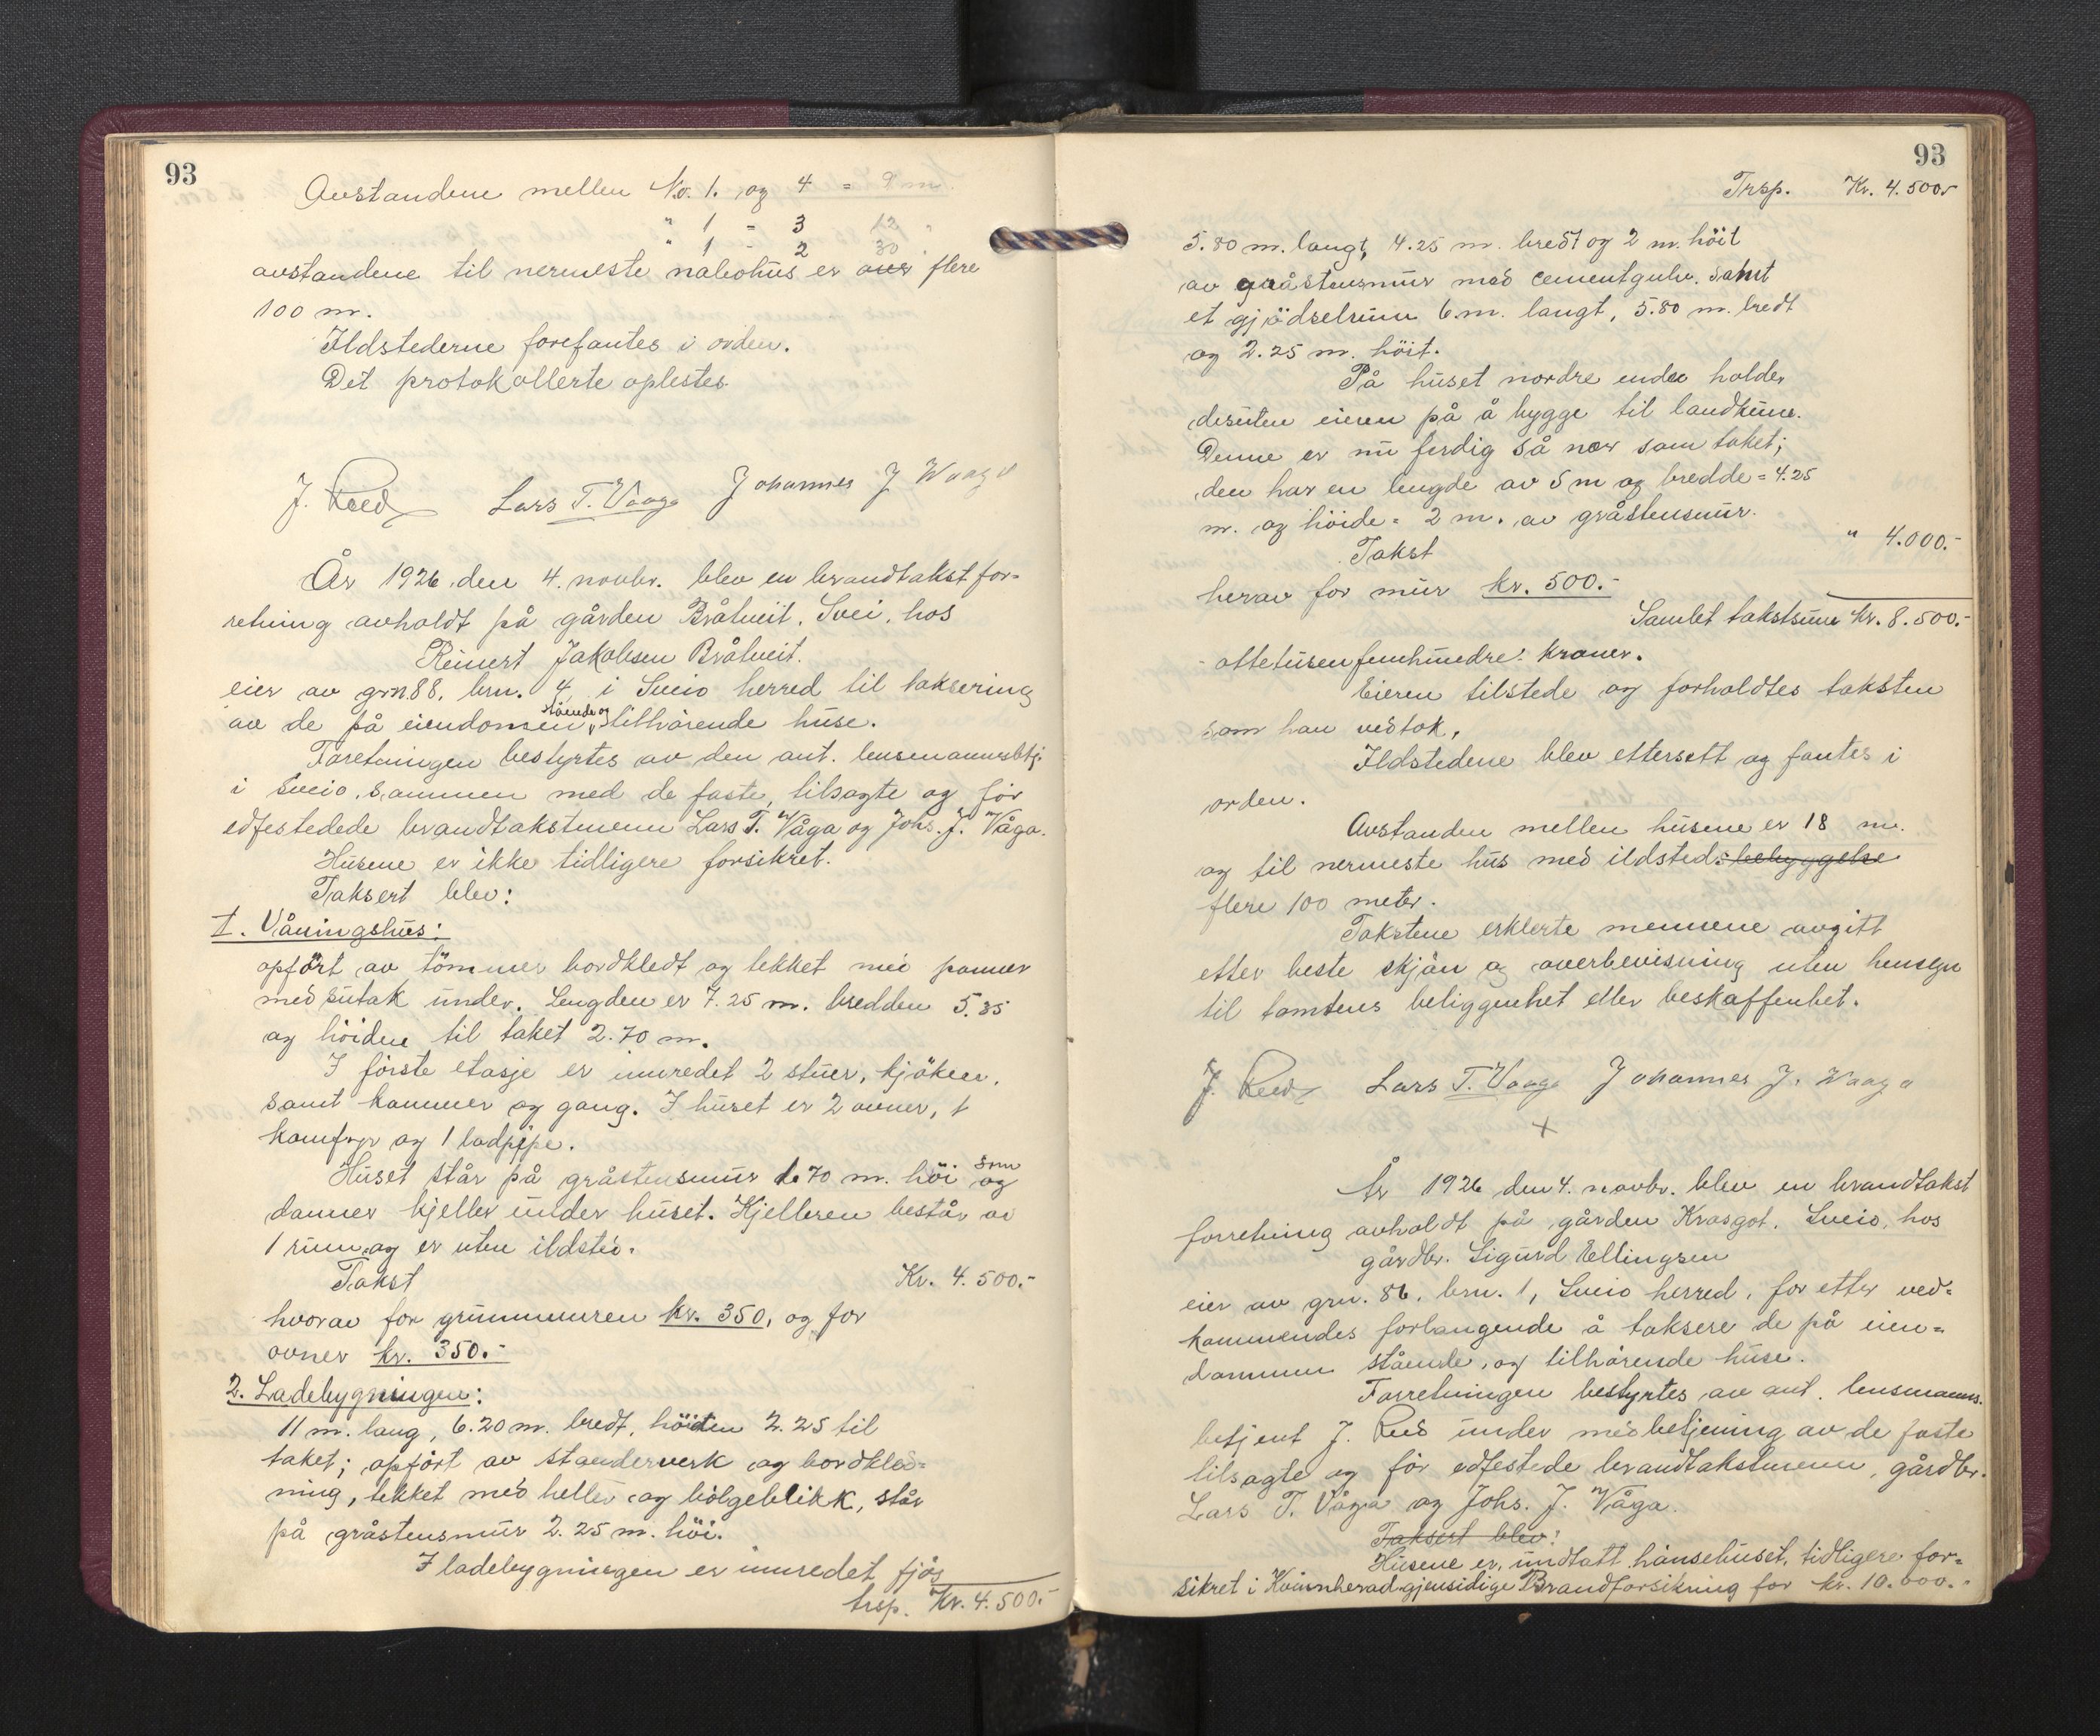 93
Avstandene mellem No. 1. og 4 = 9 m.
" 1 - 3 12 "
" 1 - 2 30 "
avstandene til nermeste nabohus er over flere
100 m.
Ildstederne forefantes i orden.
Det protokollerte oplestes.
J. Reed Lars T. Vaage Johannes J Waage
År 1926, den 4. novbr. blev en brandtakst for-
retning avholdt på gården Bråtveit, Svei, hos
Reinert Jakobsen Bråtveit.
eier av grn 88, brn. 4, i Sveio herred til taksering
av de på eiendomen stående og tilhörende huse.
Forretningen bestyrtes av den aut. lensmannsbtj.
i Sveio, sammen med de faste, tilsagte og för
edfestedede brandtakstmenn Lars T. Våga og Johs. J. Våga.
Husene er ikke tidligere forsikret.
Taksert blev:
1. Våningshus:
opfört av tömmer bordkledt og tekket med panner
med sutak under. Lengden er 7.25 m. bredden 5.35
og höiden til taket 2.70 m.
I förste etasje er innredet 2 stuer, kjöken,
samt kammer og gang. I huset er 2 ovner, 1
komfyr og 1 ladpipe.
Huset står på gråstensmur 1.70 m. höi som og
danner kjeller under huset. Kjelleren består av
1 rum og er uten ildsted.
Takst Kr. 4.500.-
hvorav for grunnmuren kr. 350, og for
ovner kr. 350.-
2. Ladebygningen:
11 m. lang, 6.20 m. bredt, höiden 2.25 til
taket; opfört av standerverk og bordkled-
ning, tekket med heller og bölgeblikk, står
på gråstensmur 2.25 m. höi.
I ladebygningen er innredet fjös
trsp. Kr. 4.500.-
93
Trsp. Kr. 4.500.-
5.80 m. langt, 4.25 m. bredt og 2 m. höit
av gråstensmur med cementgulv. Samt
et gjödselrum 6 m. langt, 5.80 m. bredt
og 2.25 m. höit.
På huset nordre ende holder
desuten eieren på å bygge til landkum.
Denne er nu ferdig så nær som taket;
den har en lengde av 5 m og bredde = 4.25
m. og höide = 2 m. av gråstensmur.
Takst " 4.000.-
herav for mur kr. 500.-
Samlet takstsum kr. 8.500.-
- ottetusenfemhundre: kroner.
Eieren tilstede og forholdtes taksten
som han vedtok,
Ildstedene blev ettersett og fantes i
orden.
Avstanden mellem husene er 18 m.
og til nermeste hus med ildsteds bebyggelse
flere 100 meter.
Takstene erklerte mennene avgitt
etter beste skjön og overbevisning uten hensyn
til tomtens beliggenhet eller beskaffenhet.
J. Reed Lars T. Vaage Johannes J. Waage
+
År 1926 den 4. novbr. blev en brandtakst
forretning avholdt på gården Krasgot, Sveio, hos
gårdbr. Sigurd Ellingsen
eier av grn. 86, brn. 1, Sveio herred, for etter ved-
kommendes forlangende å taksere de på eien-
dommen stående, og tilhörende huse.
Forretningen bestyrtes av aut. lensmanns-
betjent J. Reed under medbetjening av de faste
tilsagte og för edfestede brandtakstmenn, gårdbr.
Lars T. Våga og Johs. J. Våga.
Taksert blev:
Husene er, undtatt hönsehuset, tidligere for-
sikret i Kvinnherad gjensidige Brandforsikring for kr. 10.000.-